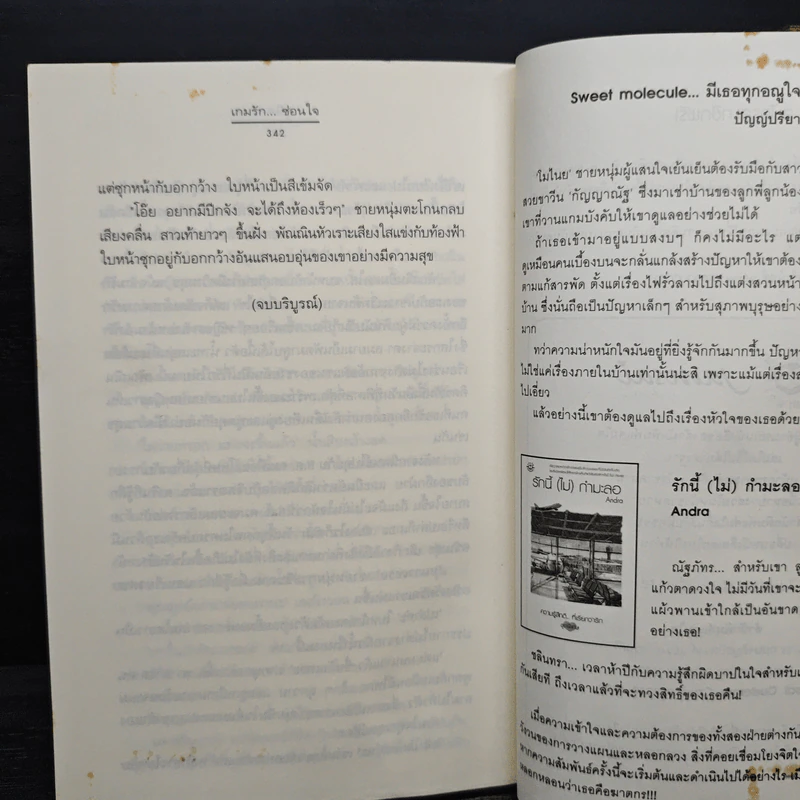 เกมรัก... ซ่อนใจ
342
แต่ซุกหน้ากับอกกว้าง ใบหน้าเป็นสีเข้มจัด
"โอ๊ย อยากมีปีกจัง จะได้ถึงห้องเร็วๆ" ชายหนุ่มตะโกนกลบ
เสียงคลื่น สาวเท้ายาวๆ ขึ้นฝั่ง พัณณินหัวเราะเสียงใสแข่งกับท้องฟ้า
ใบหน้าซุกอยู่กับอกกว้างอันแสนอบอุ่นของเขาอย่างมีความสุข
(จบบริบูรณ์)
Sweet molecule... มีเธอทุกอณูใจ
ปัญญ์ปรียา
'ใมไนย' ชายหนุ่มผู้แสนใจเย้นเย็นต้องรับมือกับสาว
สวยขาวีน 'กัญญาณัฐ' ซึ่งมาเช่าบ้านของลูกพี่ลูกน้อง
เขาที่วานแกมบังคับให้เขาดูแลอย่างช่วยไม่ได้
ถ้าเธอเข้ามาอยู่แบบสงบๆ ก็คงไม่มีอะไร แต่
ดูเหมือนคนเบื้องบนจะกลั่นแกล้งสร้างปัญหาให้เขาต้อง
ตามแก้สารพัด ตั้งแต่เรื่องไฟรั่วลามไปถึงแต่งสวนหน้า
บ้าน ซึ่งนั่นถือเป็นปัญหาเล็กๆ สำหรับสุภาพบุรุษอย่าง
มาก
ทว่าความน่าหนักใจมันอยู่ที่ยิ่งรู้จักกันมากขึ้น ปัญหา
ไม่ใช่แค่เรื่องภายในบ้านเท่านั้นน่ะสิ เพราะแม้แต่เรื่อง
ไปเอี่ยว
แล้วอย่างนี้เขาต้องดูแลไปถึงเรื่องหัวใจของเธอด้วย
รักนี้ (ไม่) กำมะลอ
Andra
ความรู้สึกดี.. ที่เรียกว่ารัก
รักนี้ (ไม่) กำมะลอ
Andra
ณัฐภัทร... สำหรับเขา
แก้วตาดวงใจ ไม่มีวันที่เขาจะ
แผ้วพานเข้าใกล้เป็นอันขาด
อย่างเธอ!
ชลินทรา... เวลาห้าปีกับความรู้สึกผิดบาปในใจสำหรับ
กันเสียที ถึงเวลาแล้วที่จะทวงสิทธิ์ของเธอคืน!
เมื่อความเข้าใจและความต้องการของทั้งสองฝ่ายต่างกัน
วังวนของการวางแผนและหลอกลวง สิ่งที่คอยเชื่อมโยงจิตใจ
ความสัมพันธ์ครั้งนี้จะเริ่มต้นและดำเนินไปได้อย่างไร
หลอกหลอนว่าเธอคือฆาตกร!!!